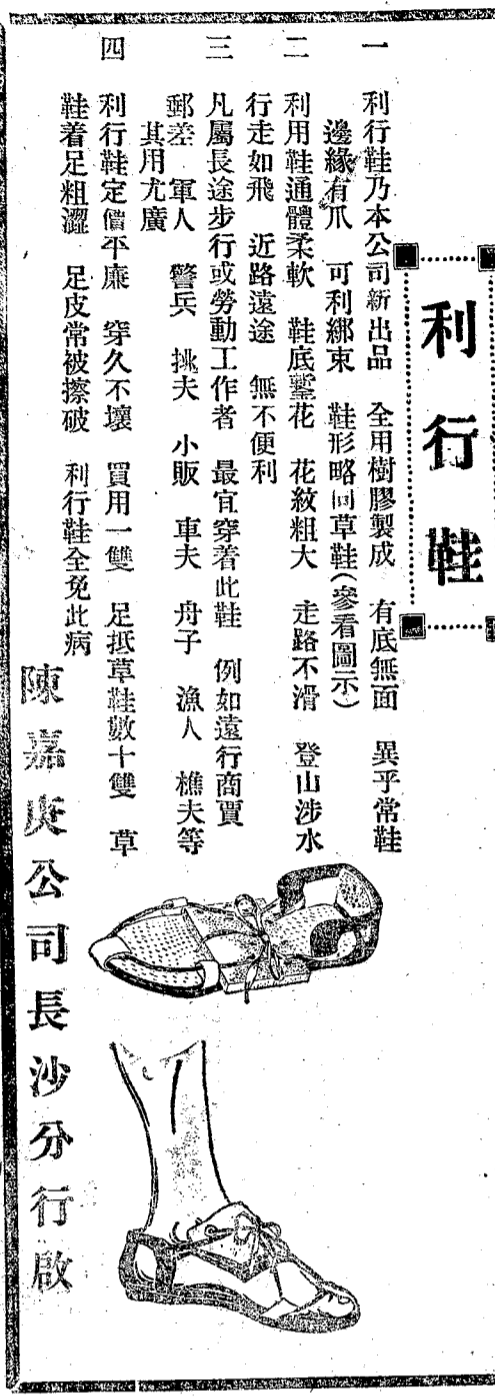 利行鞋
一 利行鞋乃本公司新出品 全用樹膠製成 有底無面 異乎常鞋
邊緣有爪 可利綁束 鞋形略同草鞋(參看圖示)
二 利用鞋通體柔軟 鞋底鏨花 花紋粗大 走路不滑 登山涉水
行走如飛 近路遠途 無不便利
三 凡屬長途步行或勞動工作者 最宜穿着此鞋 例如遠行商賈
郵差 軍人 警兵 挑夫 小販 車夫 舟子 漁人 樵夫等
其用尤廣
四 利行鞋定價平廉 穿久不壞 買用一雙 足抵草鞋數十雙 草
鞋着足粗澀 足皮常被擦破 利行鞋全免此病
陳嘉庚公司長沙分行啟